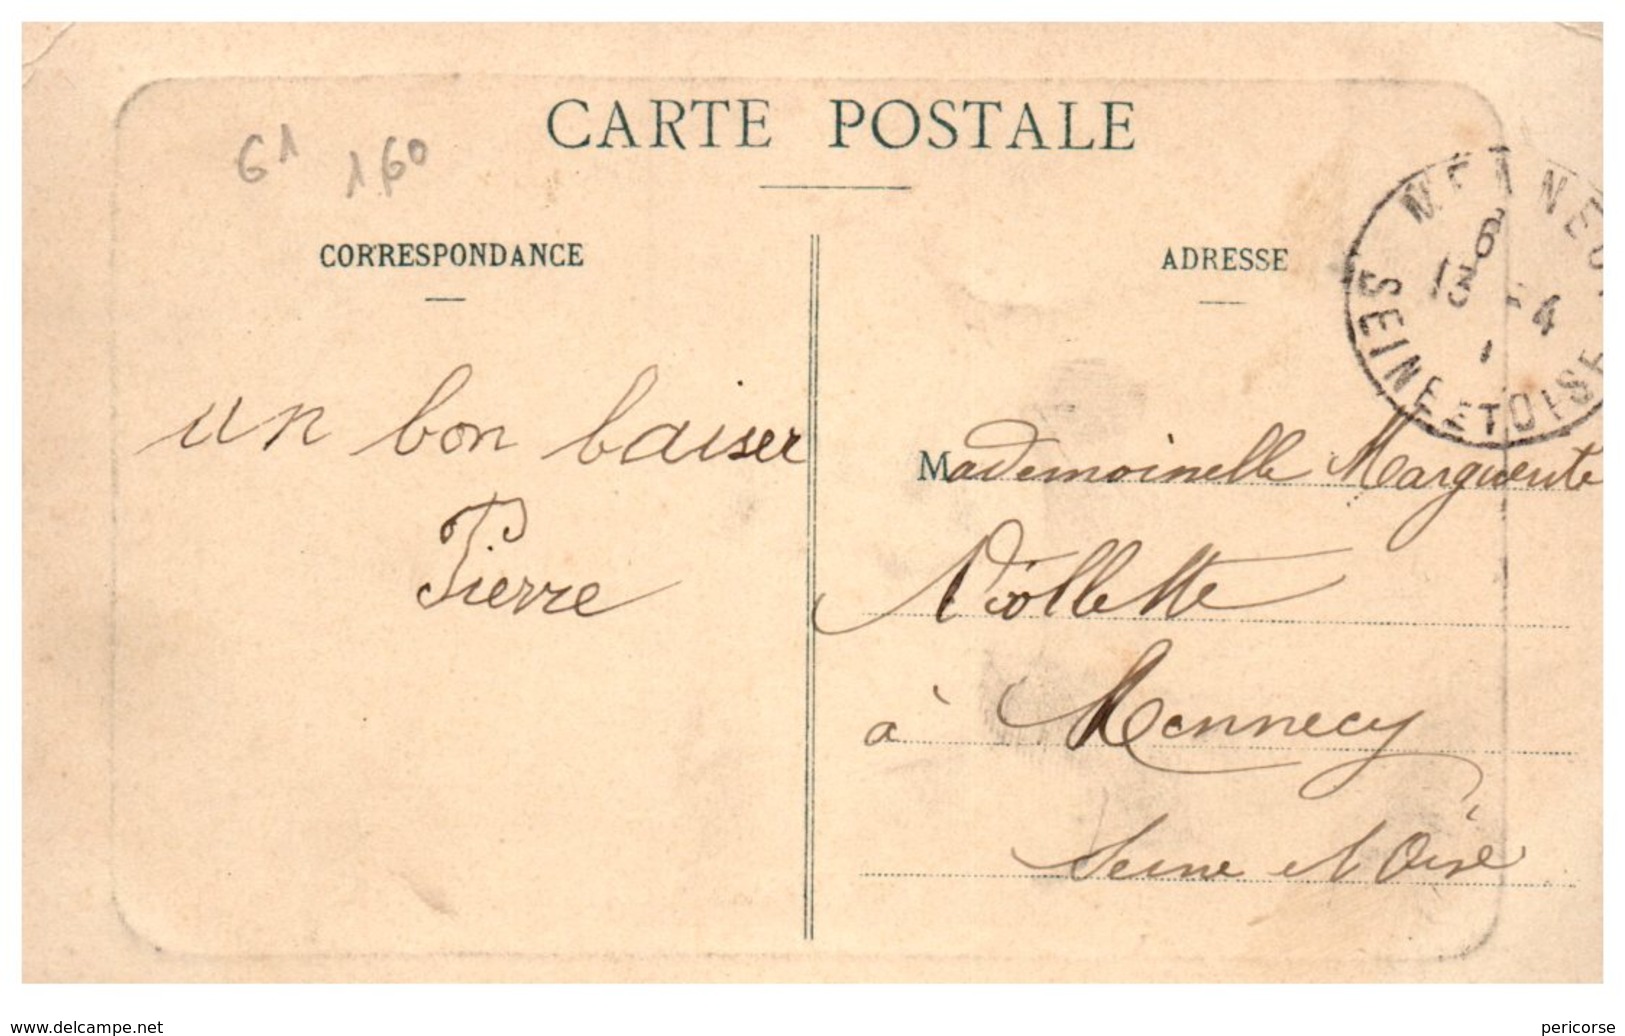 CARTE POSTALE
61
160
CORRESPONDANCE
un bon baiser
Pierre
ADRESSE
Mademoiselle Marguerite
Viollette
à Mennecy
Seine et Oise
6
13 - 4
1
SEINE ET OISE
www.delcampe.net
pericorse